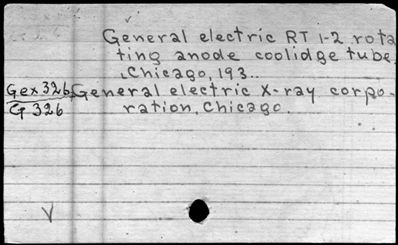 General electric RT 1-2 rota
ting anode coolidge tube.
Chicago, 193..
Gex 326 General electric X-ray corpo-
G 326 ration, Chicago.
V